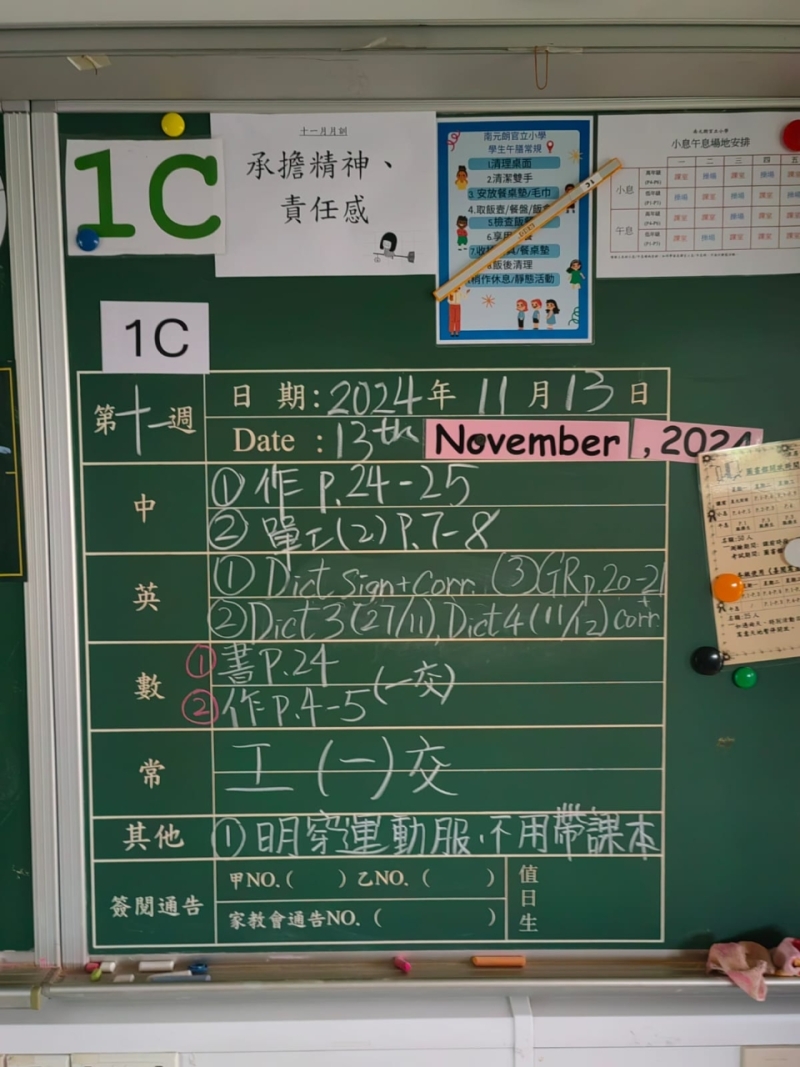 1C
十一月月訓
承擔精神、
責任感
南元朗官立小學
學生午膳常規
1.清理桌面
2.清潔雙手
3.安放餐桌墊/毛巾
4.取飯壺/餐盤/飯
5.檢查飯
6.享用 餐
7.收 具/餐桌墊
飯後清理
稍作休息/靜態活動
小息午息場地安排
一 二 三 四 五
小息
午息
1C
第十一週
日 期:2024年 11月13日
Date :13th November , 2024
中
①作 P.24-25
②單工(2) P.7-8
英
①Dict sign+corr. ③GR p.20-21
②Dict 3 (27/11), Dict 4 (11/12) corr.
數
①書 P.24
②作 P.4-5 (一交)
常
工 (一)交
其他
①明穿運動服、不用帶課本
簽閱通告
甲NO.( ) 乙NO.( )
家教會通告NO.( )
值日生